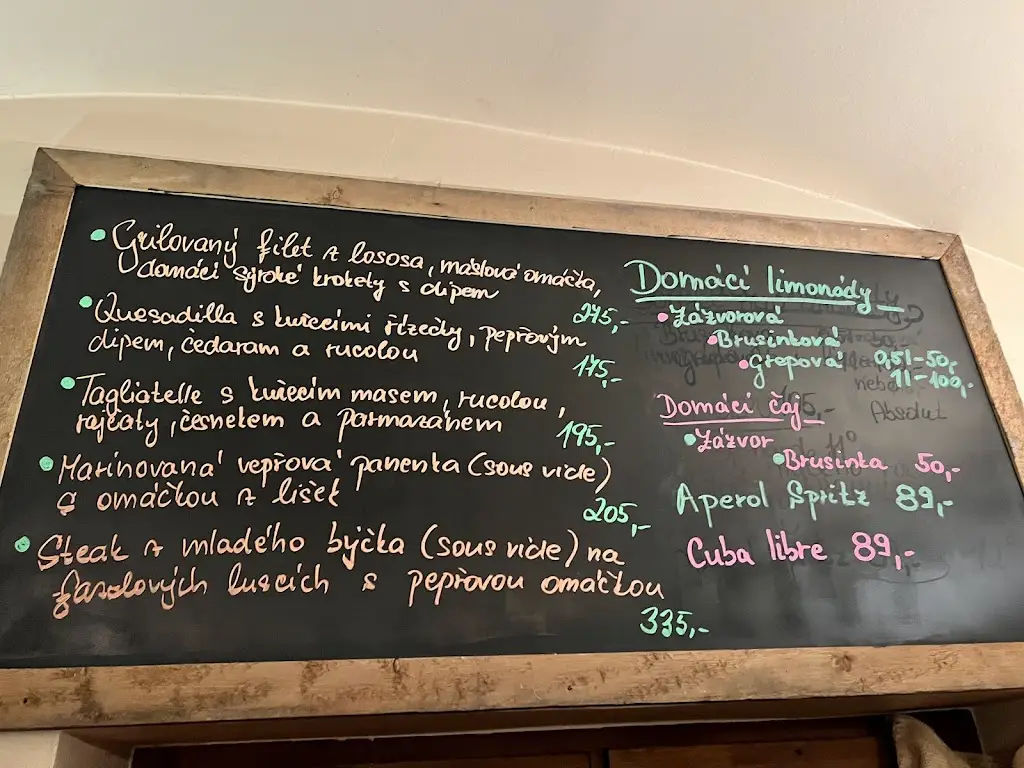 • Grilovaný filet z lososa, máslová omáčka,
domácí sýrové krokety s dipem
275,-
• Quesadilla s kuřecími řízečky, pepřovým
dipem, čedarem a rucolou
175,-
• Tagliatelle s kuřecím masem, rucolou,
rajčaty, česnekem a parmazánem
195,-
• Marinovaná vepřová panenka (sous vide)
s omáčkou z lišek
205,-
• Steak z mladého býčka (sous vide) na
fazolových luscích s pepřovou omáčkou
335,-
Domácí limonády
• Zázvorová
• Brusinková
• Grepová 0,5l-50,-
1l-100,-
Domácí čaj
• Zázvor
• Brusinka 50,-
Aperol Spritz 89,-
Cuba libre 89,-
nebo
Absolut